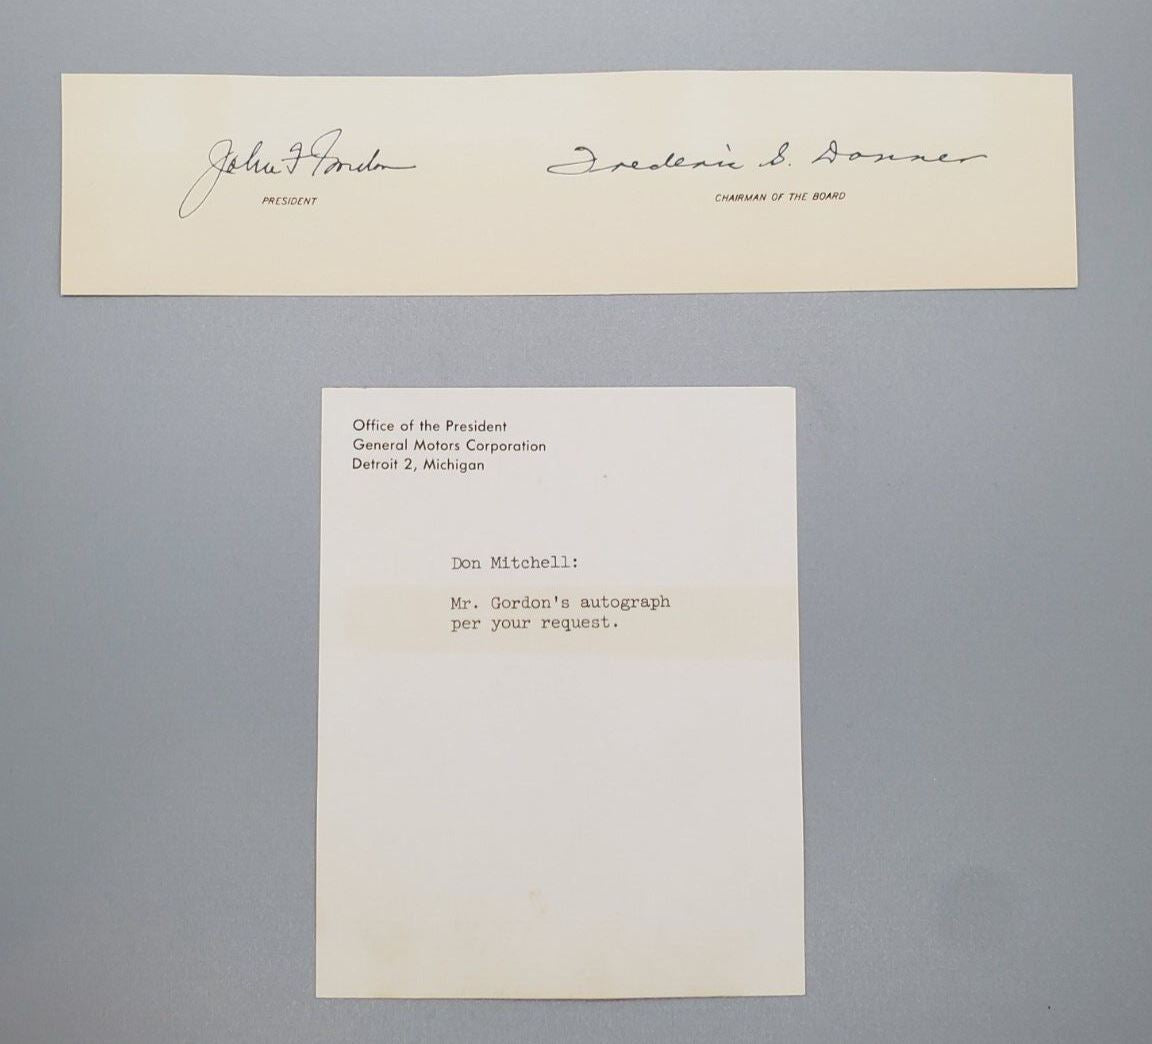 John F Gordon
PRESIDENT
Frederic G. Donner
CHAIRMAN OF THE BOARD
Office of the President
General Motors Corporation
Detroit 2, Michigan
Don Mitchell:
Mr. Gordon's autograph
per your request.